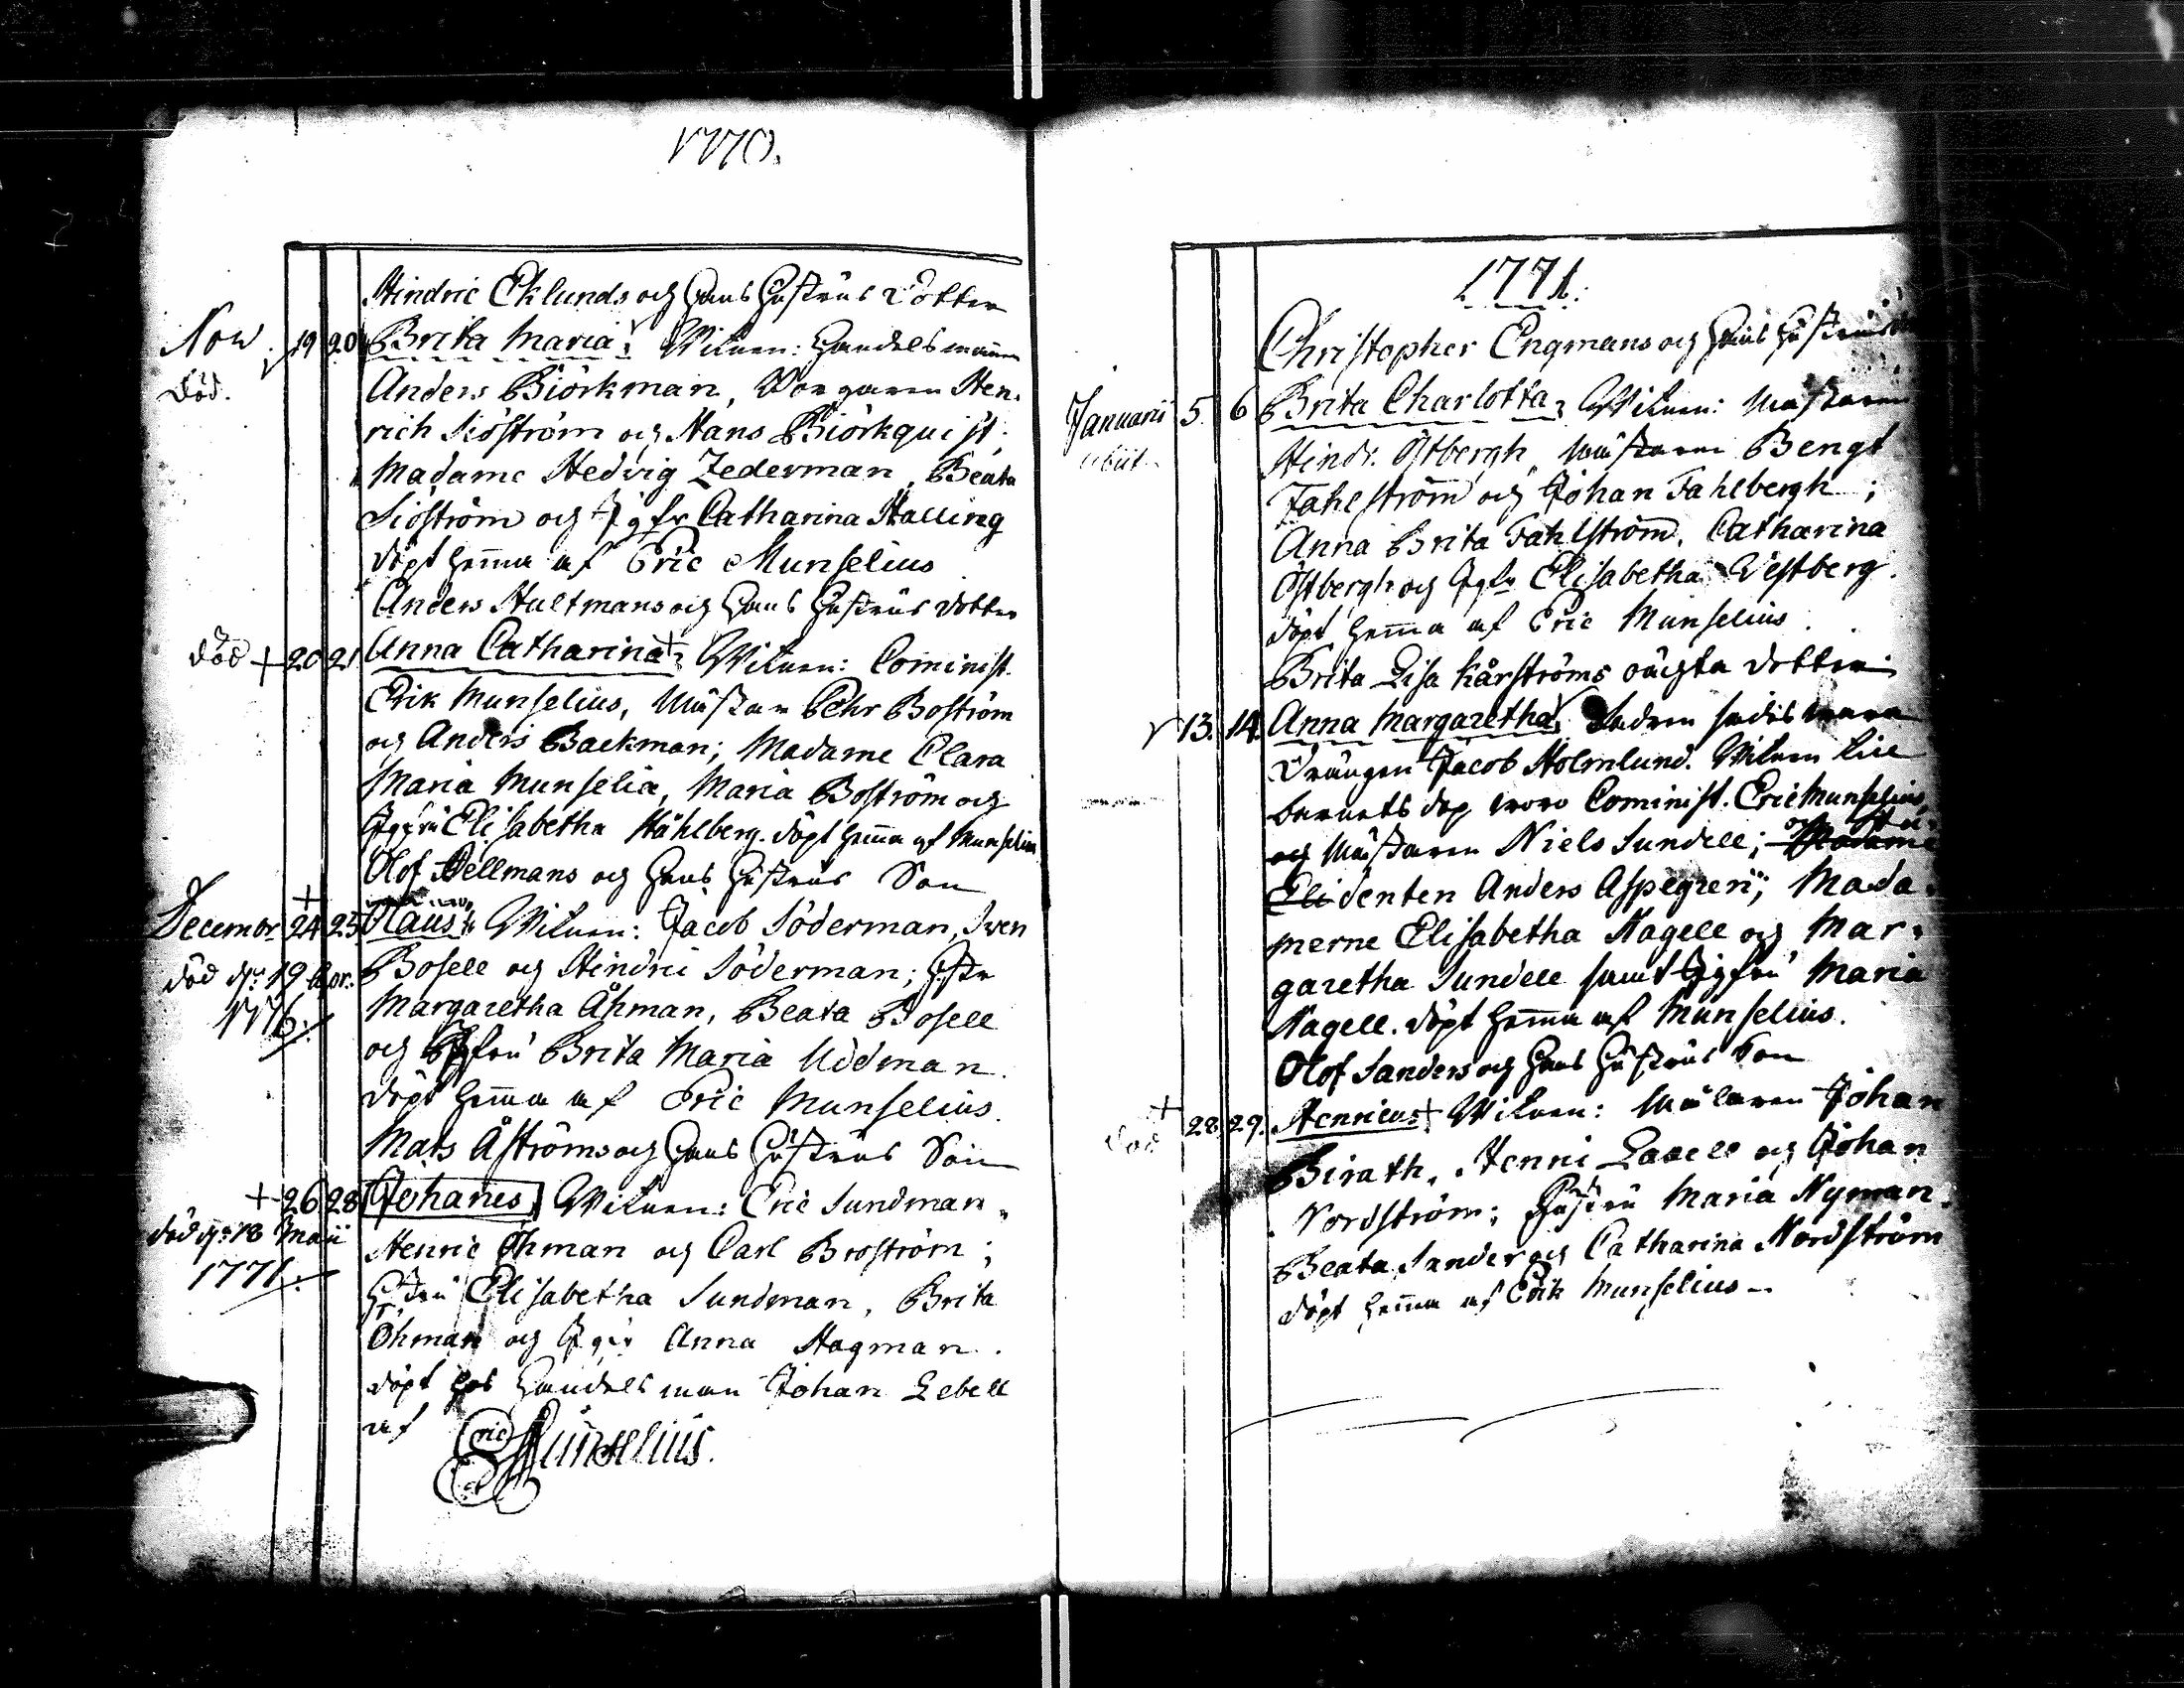 1770.
Hindric Eklunds och hans hustrus dotter
Nov. 19 20 Brita Maria, Witnen: Handelsmannen
död. Anders Biörkman, Borgaren Hen-
rich Siöström och Hans Biörkquist;
Madame Hedvig Zederman, Beata
Siöström och Jgfr Catharina Halling
döpt hema af Eric Munselius
Anders Hultmans och hans hustrus dotter
död + 20 21 Anna Catharina, Witnen: Cominist.
Erik Munselius, Mästar Pehr Boström
och Anders Backman; Madame Clara
Maria Munselia, Maria Boström och
Jgfru Elisabetha Ståhlberg. döpt hema af Munselius
Olof Hellmans och hans hustrus Son
Decembr 24 25 Olaus Witnen: Jacob Söderman, Swen
död d: 19 Apr. Bosell och Hindric Söderman; hustr
1776. Margaretha Åhman, Beata Bosell
och Jgfru Brita Maria Uddman.
döpt hema af Eric Munselius.
Mats Åströms och hans hustrus Son
+ 26 28 Johanes, Witnen: Eric Sundman,
död d: 18 Maii Henric Öhman och Carl Broström;
1771. hustru Elisabetha Sundman, Brita
Öhman och Jgfr Anna Hagman.
döpt hos Handelsman Johan Lebell
af Eric Munselius.
1771.
Christopher Engmans och hans hustrus
Januarii 5 6 Brita Charlotta, Witnen: Mästaren
obiit Hindr. Östbergh, Mästaren Bengt
Fahlström och Johan Fahlbergh;
Anna Brita Fahlström, Catharina
Östbergh och Jgfr Elisabetha Westberg.
döpt hema af Eric Munselius.
Brita Lisa Kårströms oächta dotter
13. 14. Anna Margaretha, Fadren sades wara
Drängen Jacob Holmlund. Witnen till
barnets dop woro Cominist. Eric Munselius,
och Mästaren Niels Sundell; och Stu-
denten Anders Aspegren; Mada-
merne Elisabetha Nagell och Mar-
garetha Sundell samt Jgfru Maria
Nagell. döpt hema af Munselius.
Olof Sanders och hans hustrus Son
+ 28 29. Henricus Witnen: Målaren Johan
död Birath, Henric Lavell och Johan
Nordström; hustru Maria Nyman,
Beata Sander och Catharina Nordström
döpt hema af Erik Munselius